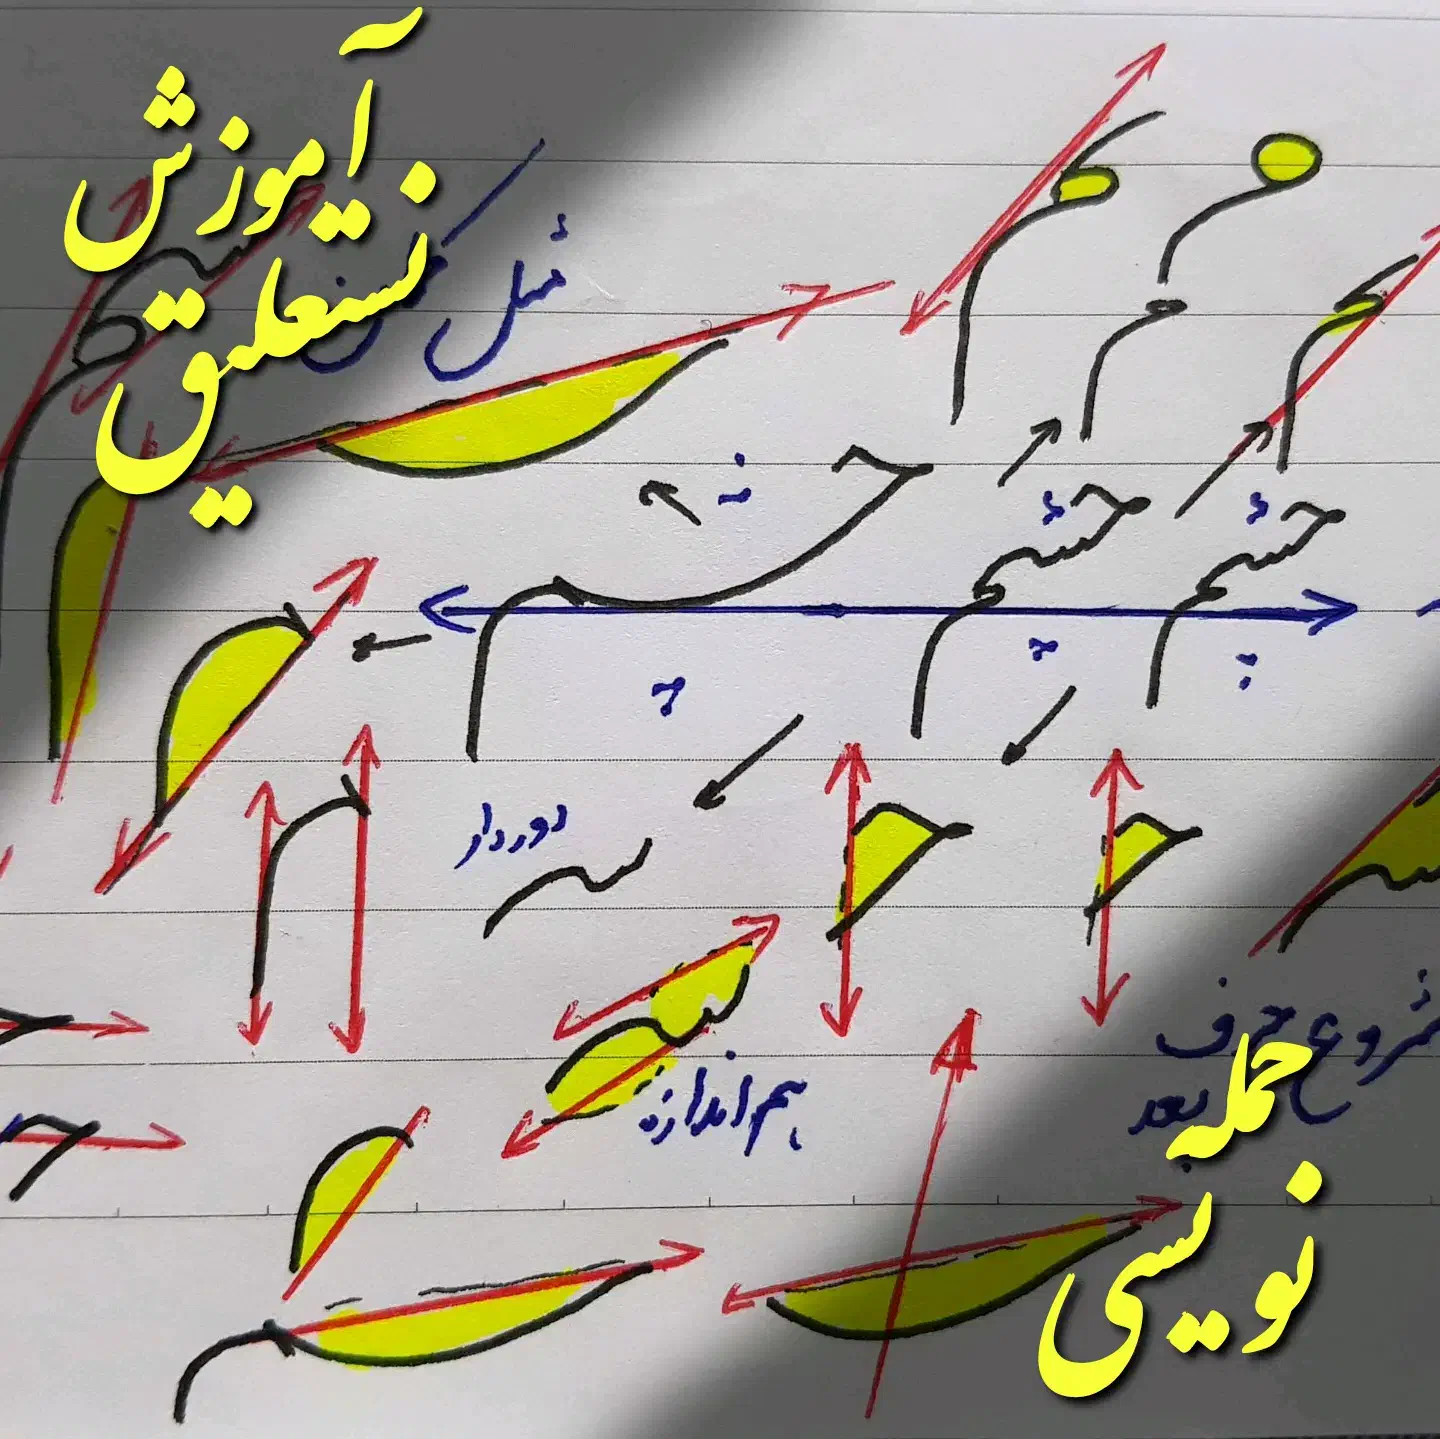 آموزش
نستعلیق
مثل
چشم چشم چشم
دوردار
هم اندازه
شروع حرف
بعد
جمله
نویسی